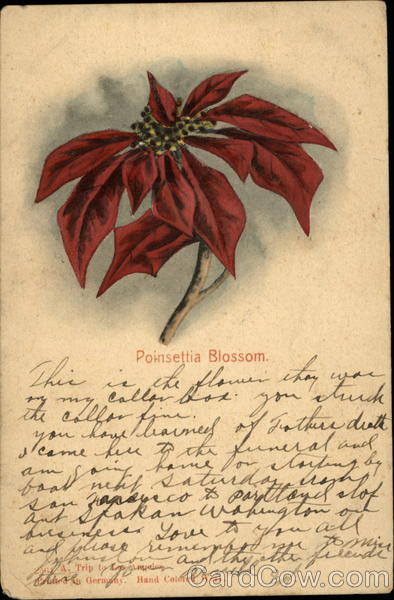 Poinsettia Blossom.
This is the flower they was
on my collar box. you struck
the collar fine.
you have learned of Fathers death
I came here to the funeral and
am going home or starting by
boat next Saturday from
San Francisco to Portland stop
out Spokan Wahington on
business Love to you all
and please remember me to
and the other friends
A. Trip to Los Angeles
Printed in Germany. Hand Colored
CardCow.com